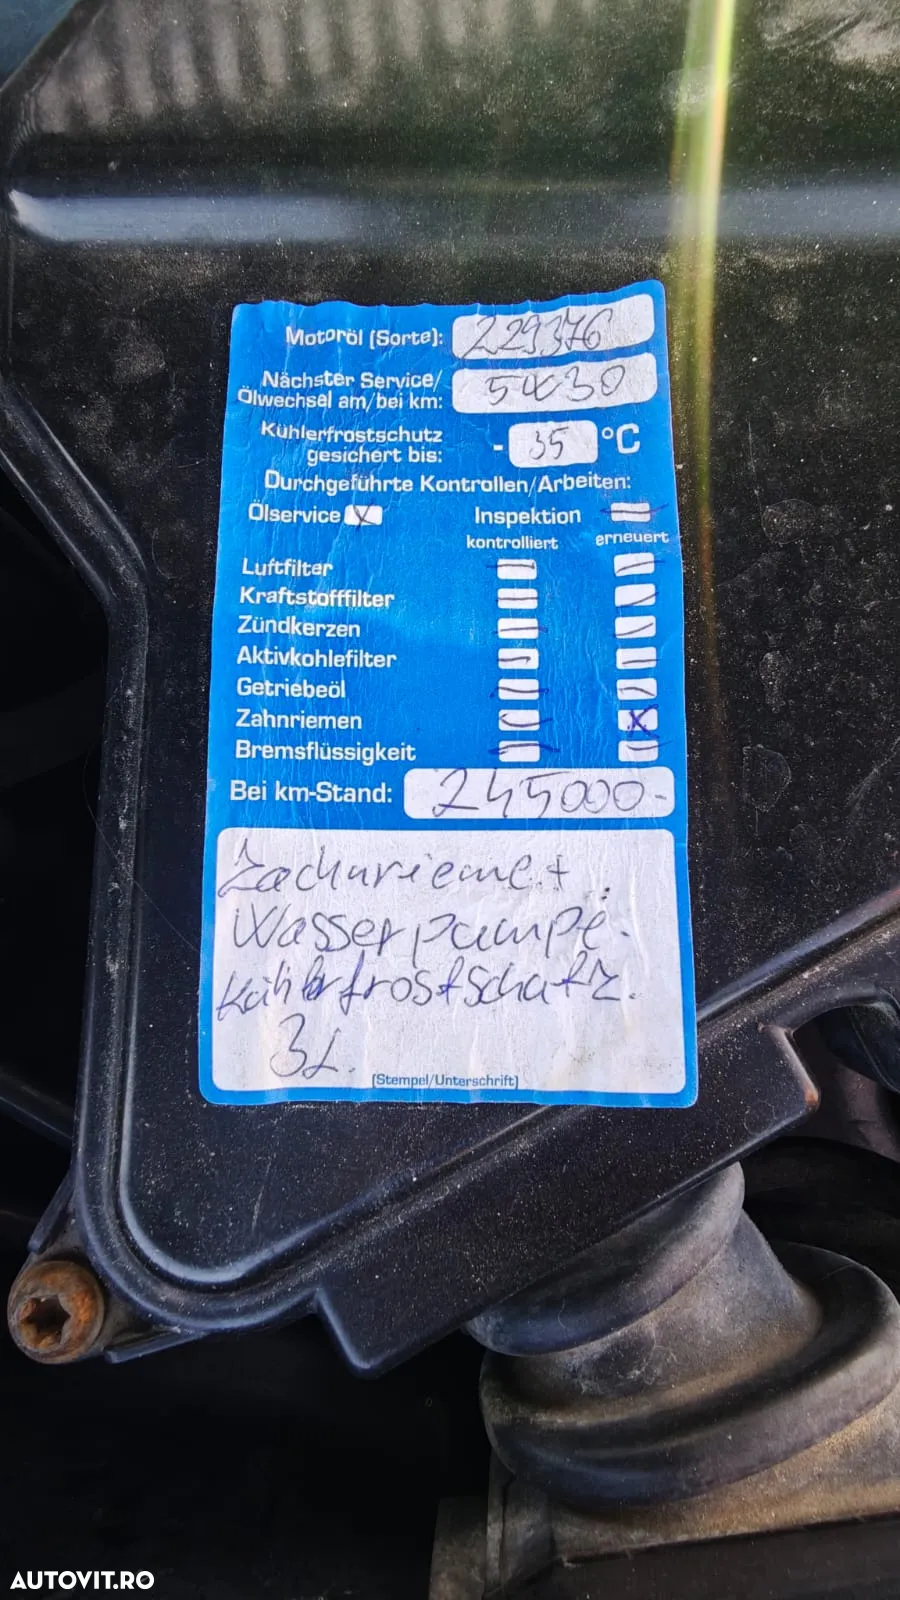 Motoröl (Sorte): 229376
Nächster Service/
Ölwechsel am/bei km: 5W30
Kühlerfrostschutz
gesichert bis: - 35 °C
Durchgeführte Kontrollen/Arbeiten:
Ölservice X Inspektion
kontrolliert erneuert
Luftfilter
Kraftstofffilter
Zündkerzen
Aktivkohlefilter
Getriebeöl
Zahnriemen X
Bremsflüssigkeit
Bei km-Stand: 245000-
Wasserpumpe.
3L.
(Stempel/Unterschrift)
AUTOVIT.RO